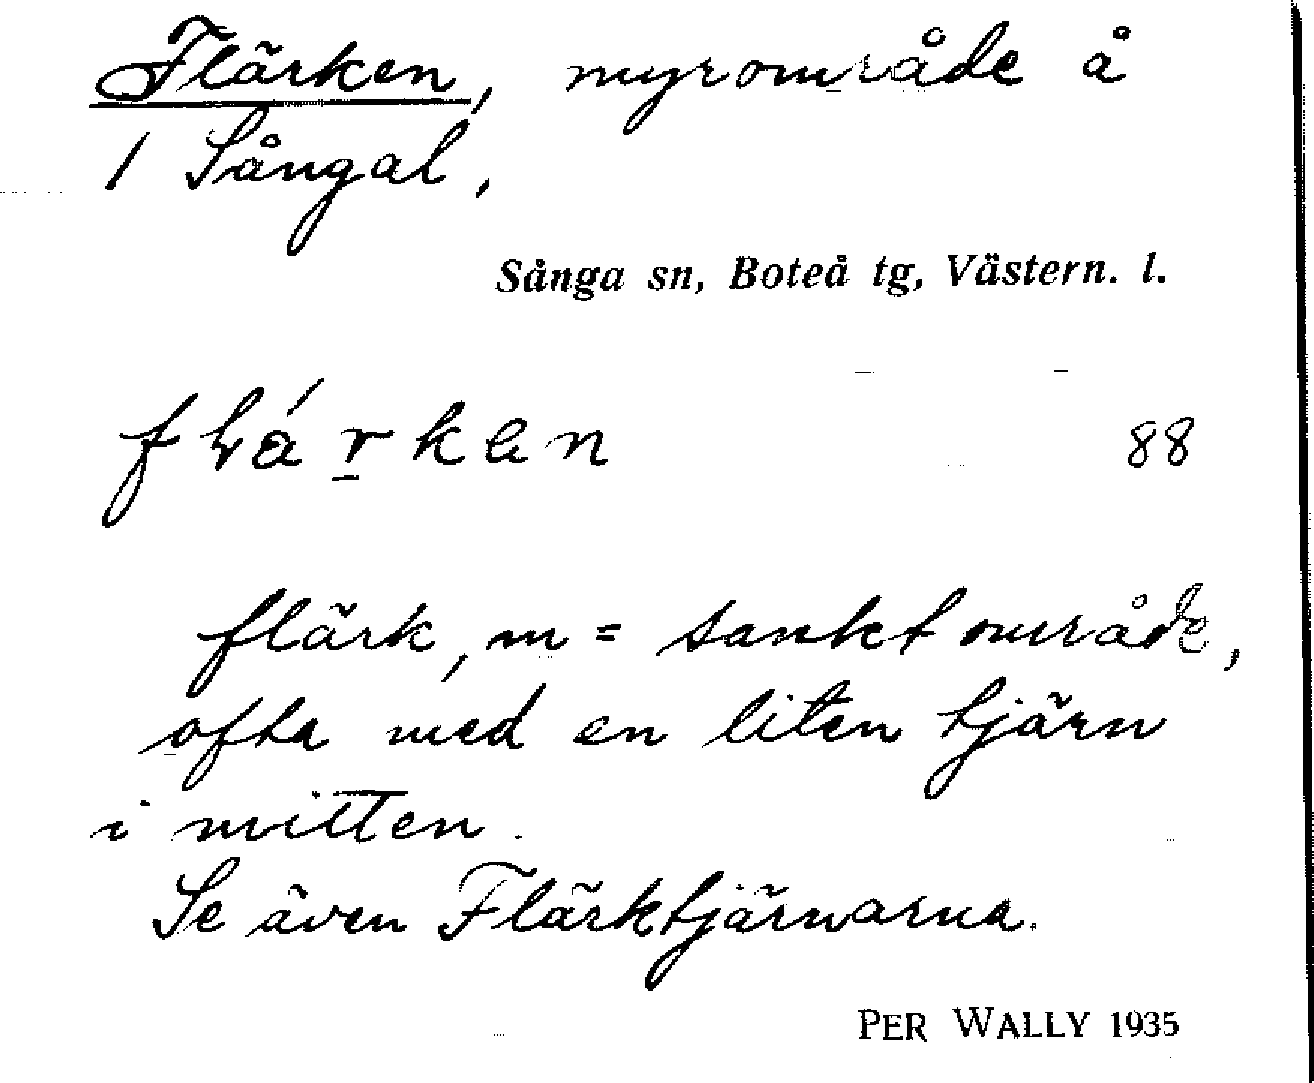 Flärken, myrområde å
1 Sångal,
Sånga sn, Boteå tg, Västern. l.
88
flärk, m = sankt område,
ofta med en liten tjärn
i mitten.
Se även Flärktjärnarna.
PER WALLY 1935